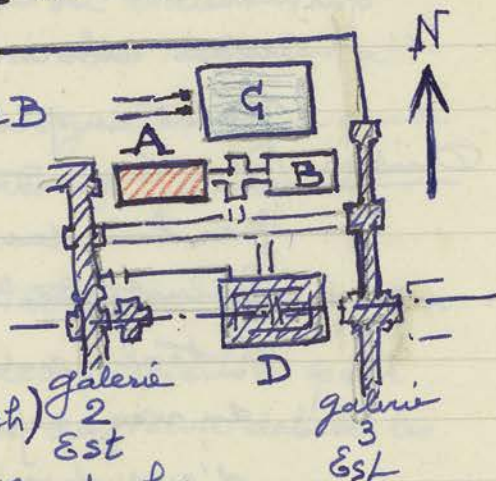 N
B
C
A
B
D
h)
galerie
2
Est
galerie
3
Est